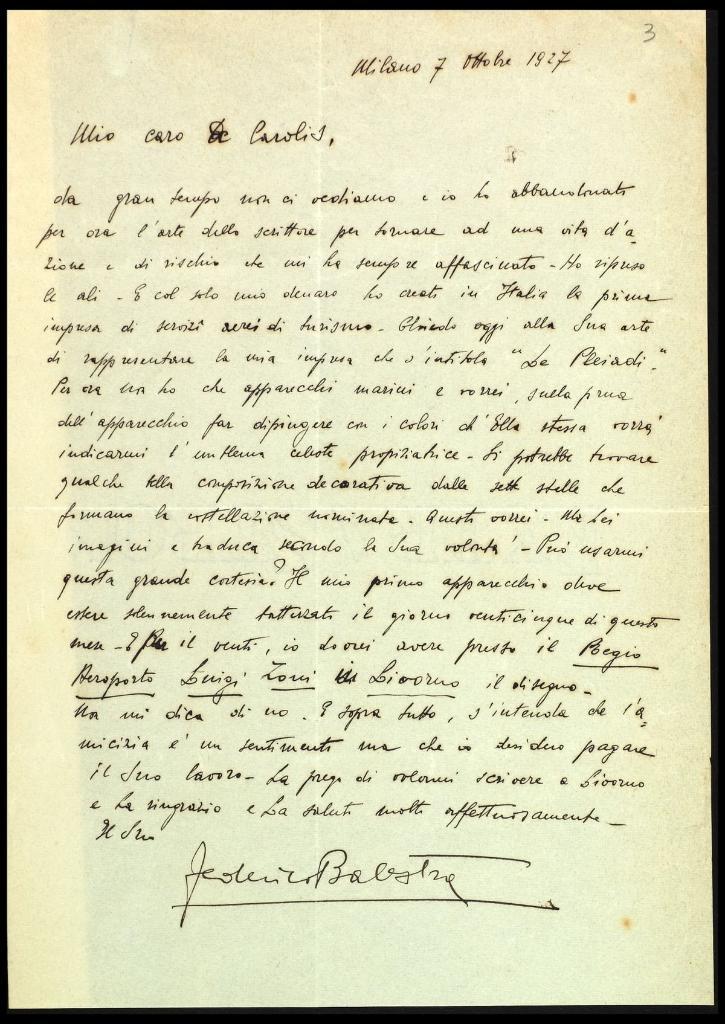 3
Milano 7 Ottobre 1927
Mio caro De Carolis,
da gran tempo non ci vediamo e io ho abbandonato
per ora l'arte dello scrittore per tornare ad una vita d'a-
zione e di rischio che mi ha sempre affascinato - Ho ripreso
le ali - E col solo mio denaro ho creato in Italia la prima
impresa di servizi aerei di turismo - Chiedo oggi alla Sua arte
di rappresentare la mia impresa che s'intitola "Le Pleiadi."
Per ora non ho che apparecchi marini e vorrei, sulla prua
dell'apparecchio far dipingere con i colori ch'Ella stessa vorrà
indicarmi l'emblema celeste propiziatrice - Si potrebbe trovare
qualche bella composizione decorativa dalle sette stelle che
formano la costellazione nominata - Questo vorrei - Ma Lei
imagini e traduca secondo la Sua volontà - Può usarmi
questa grande cortesia? Il mio primo apparecchio deve
essere solennemente battezzato il giorno venticinque di questo
mese - E per il venti, io dovrei avere presso il Regio
Aeroporto Luigi Zoni in Livorno il disegno -
Non mi dica di no. E sopra tutto, s'intenda che l'a-
micizia è un sentimento ma che io desidero pagare
il Suo lavoro - La prego di volermi scrivere a Livorno
e La ringrazio e La saluto molto affettuosamente -
Il Suo
Federico Balestra